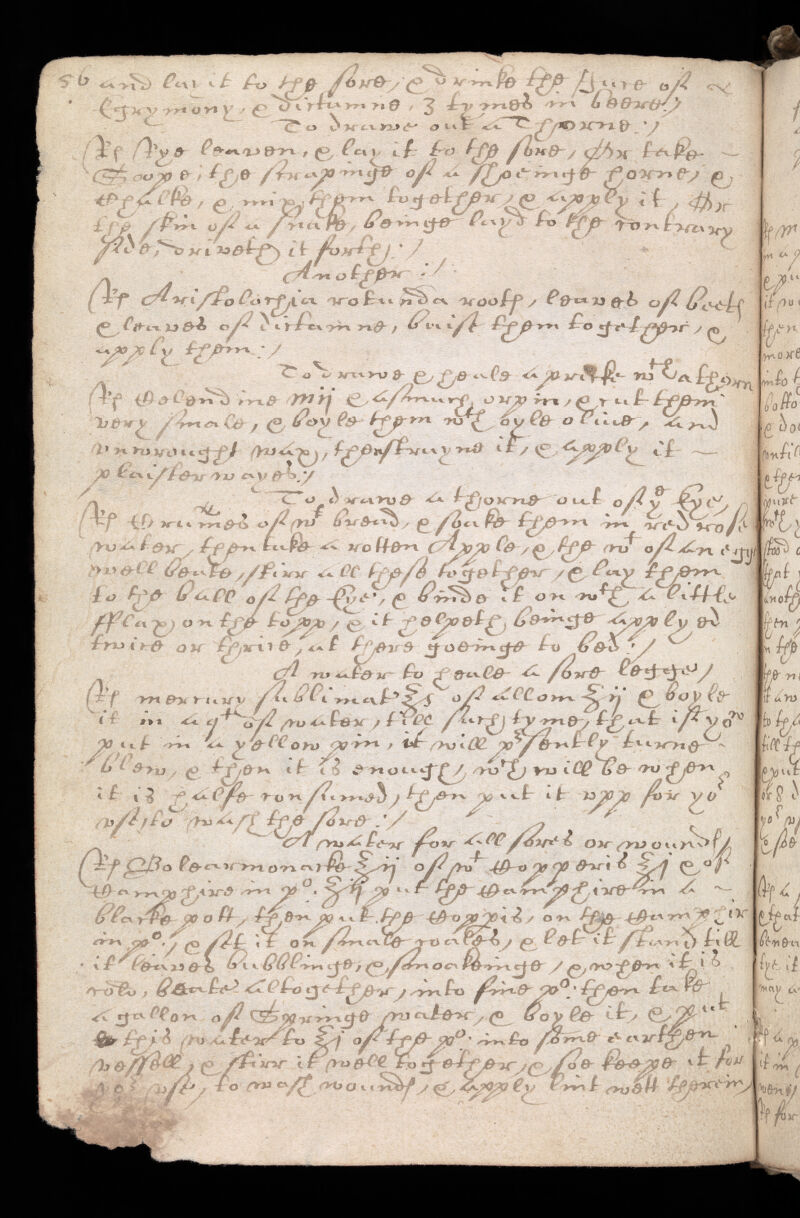 56 and lay it to the sore, & drinke the Juce of
Egrymony, & dictamne, 3 tymes in beere:/
To drawe out a Thorne:/
Rx Rye leaven, & lay it to the sore, Or take
Soope, the scrapinge of a shoeinge horne, &
Chalke, & mix them together, & apply it, Or
the skin of a snake, beinge layd to the contrary
side, driveth it forth:/
Another:/
Rx Aristolochia rotunda rooth, leaves of beeth
& leaves of dictamne, buise them together, &
apply them:/
To drawe & heale a pricke wth a thorn
Rx Celendine mij & asmuch orpin, & cut them
very smale, & boyle them wth oyle olive, and
unwrought wax, then strayne it, & apply it
plaisterwayes:/
To drawe a thorne out of ye Eye,
Rx Crumes of wt bread, & soake them in red rose
water, then take a rotten Apple, & the wt of an egg
well beate, stirr all these together, & lay them
to the ball of the Eye, & binde it on wth a little
fflax on the topp, & it helpeth beinge applyed
twice or thrice, at there goeinge to bed:/
A water to heale a sore legge,/
Rx mercury sublimat ʒs of allom ʒij & boyle
it in a qt of water, till such tyme, that if yow
put in a yellow pin, it will psently turne
blew, & then it is enough, wch will be when
it is halfe consumed, then put it upp for yor
use, to wash the sore:/
A water for all sores or wounds,
Rx Bolearmonacke ʒij of wt Copperis ʒj & of
Camphire in po. ʒij put the Camphire in a
blacke pott, then put the Coppis, on the Camphir
in po:, & set it on smale coales, & let it stand till
it leaves bubblinge, & smoakeinge, & when it is
cold, beate altogether, into fine po: then take
a gallon of Springe water, & boyle it, & put
this water to ʒj of the po: into some earthen
vessell, & stirr it well together, & soe keepe it for
yor use, to wash wounds, & apply lint wett therein,